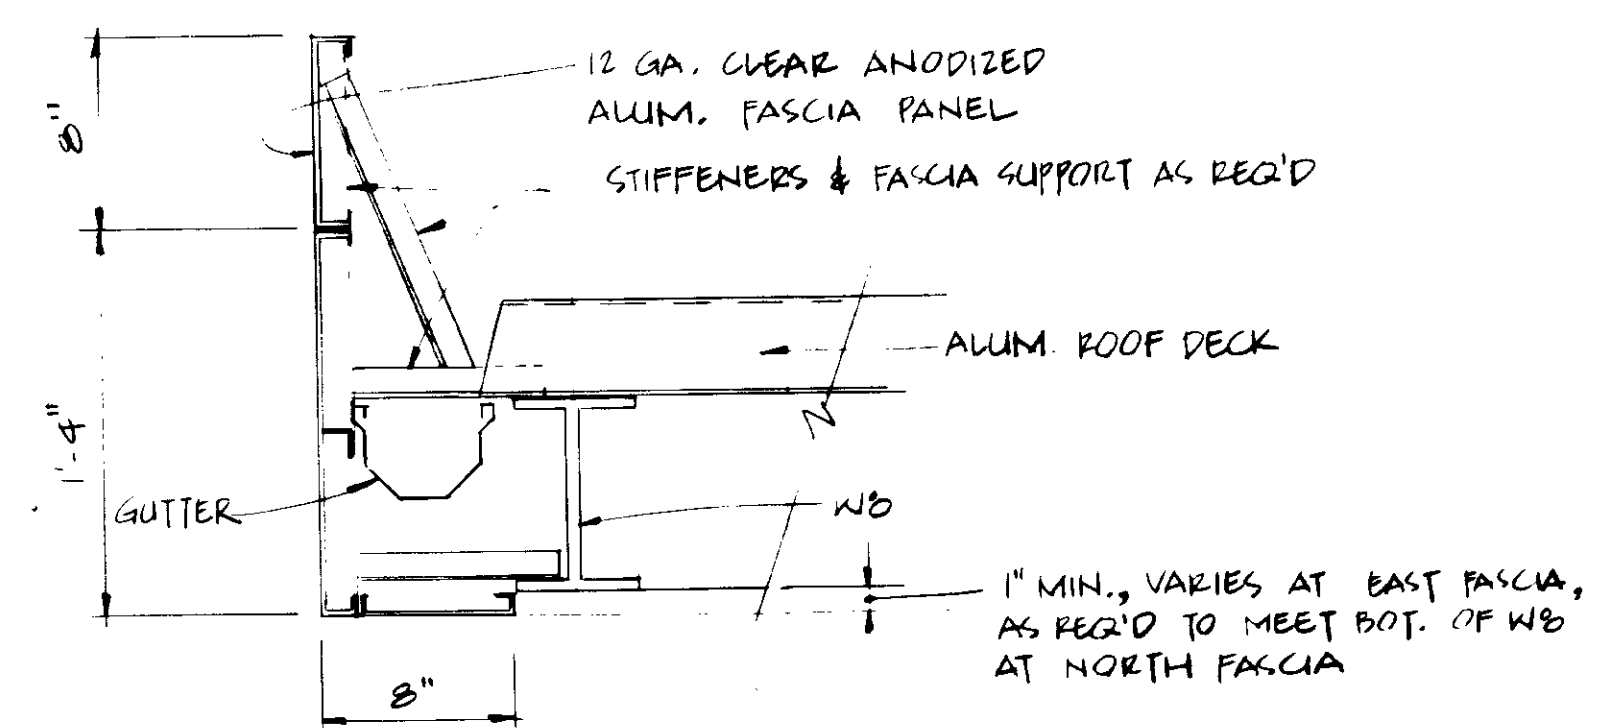 12 GA. CLEAR ANODIZED
ALUM. FASCIA PANEL
8"
STIFFENERS & FASCIA SUPPORT AS REQ'D
ALUM. ROOF DECK
1'-4"
GUTTER
W8
1" MIN., VARIES AT EAST FASCIA,
AS REQ'D TO MEET BOT. OF W8
AT NORTH FASCIA
8"